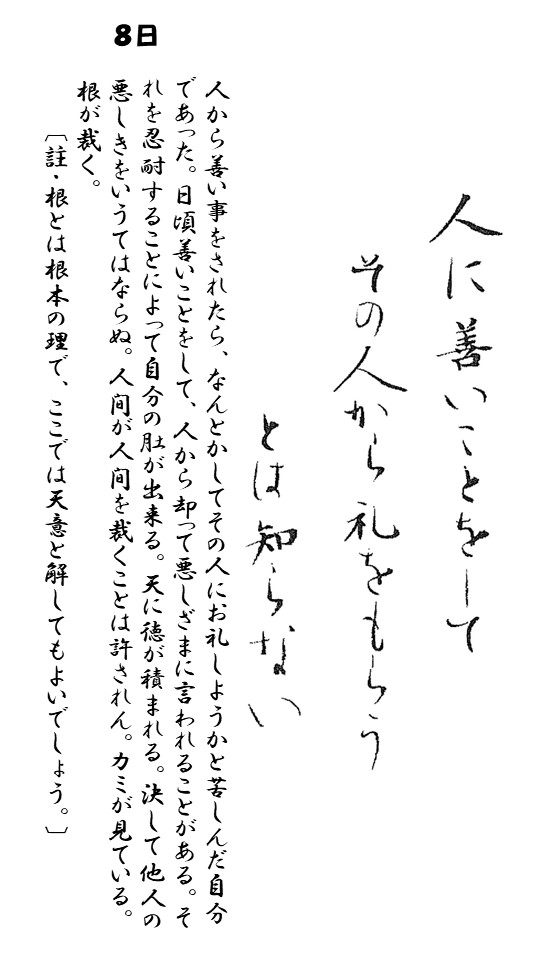 8日
人に善いことをして
その人から礼をもらう
とは知らない
人から善い事をされたら、なんとかしてその人にお礼しようかと苦しんだ自分
であった。日頃善いことをして、人から却って悪しざまに言われることがある。そ
れを忍耐することによって自分の肚が出来る。天に徳が積まれる。決して他人の
悪しきをいうてはならぬ。人間が人間を裁くことは許されん。カミが見ている。
根が裁く。
〔註・根とは根本の理で、ここでは天意と解してもよいでしょう。〕